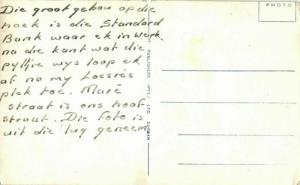 Die groot gebou op die
hoek is die Standard
Bank waar ek in werk.
na die kant wat die
pyltjie wys loop ek
af na my losies
plek toe. Maré
straat is ons hoof
straat. Die foto is
uit die lug geneem.
PHOTO
PUBLISHERS (PTY.) LTD. DURBAN